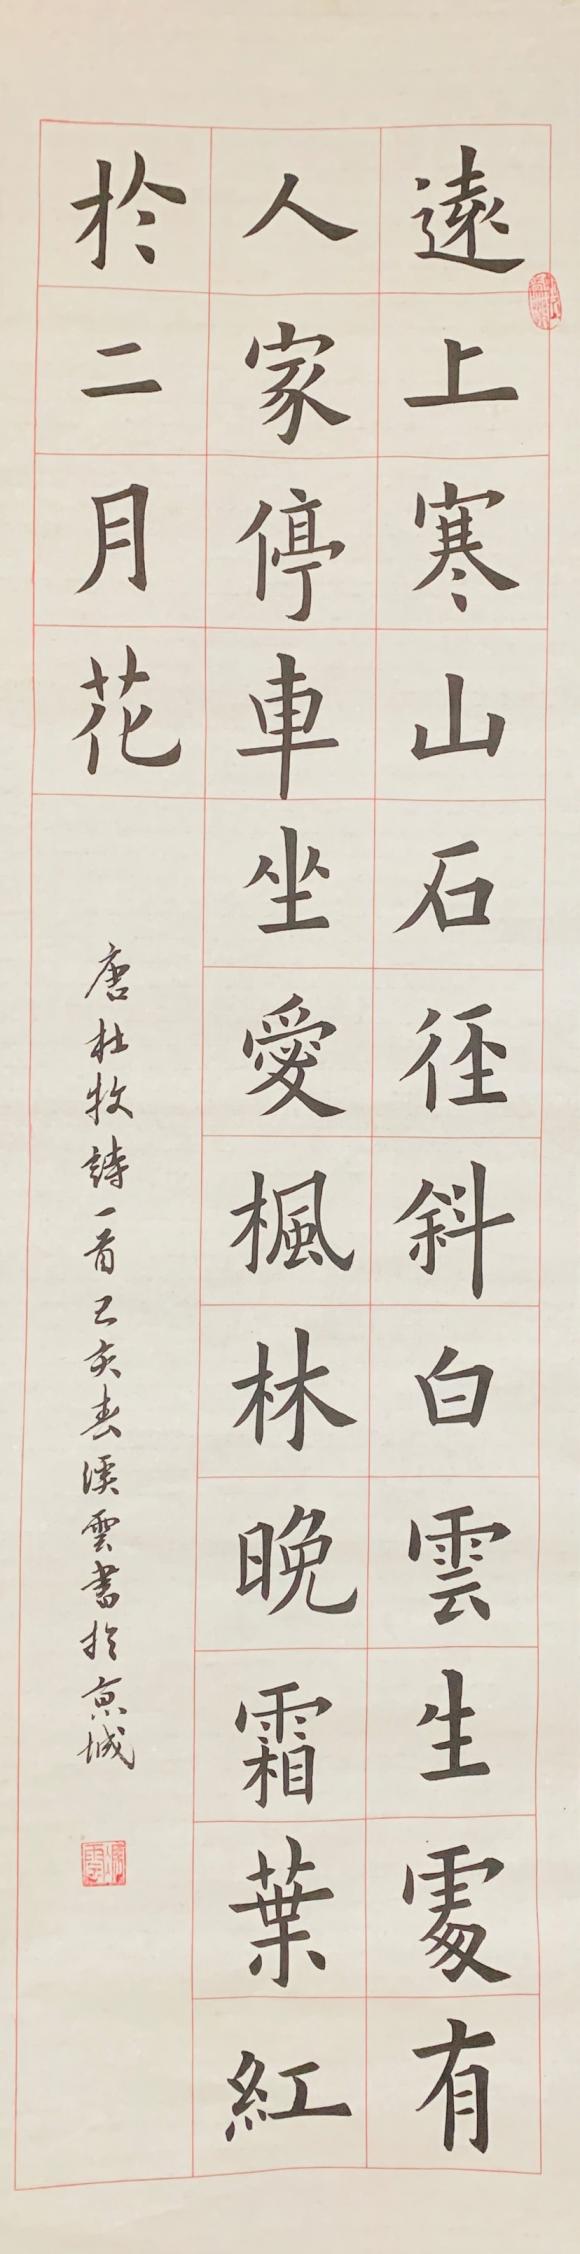 遠上寒山石径斜白雲生處有
人家停車坐愛楓林晚霜葉紅
於二月花
唐杜牧詩一首己亥春溪雲書於京城